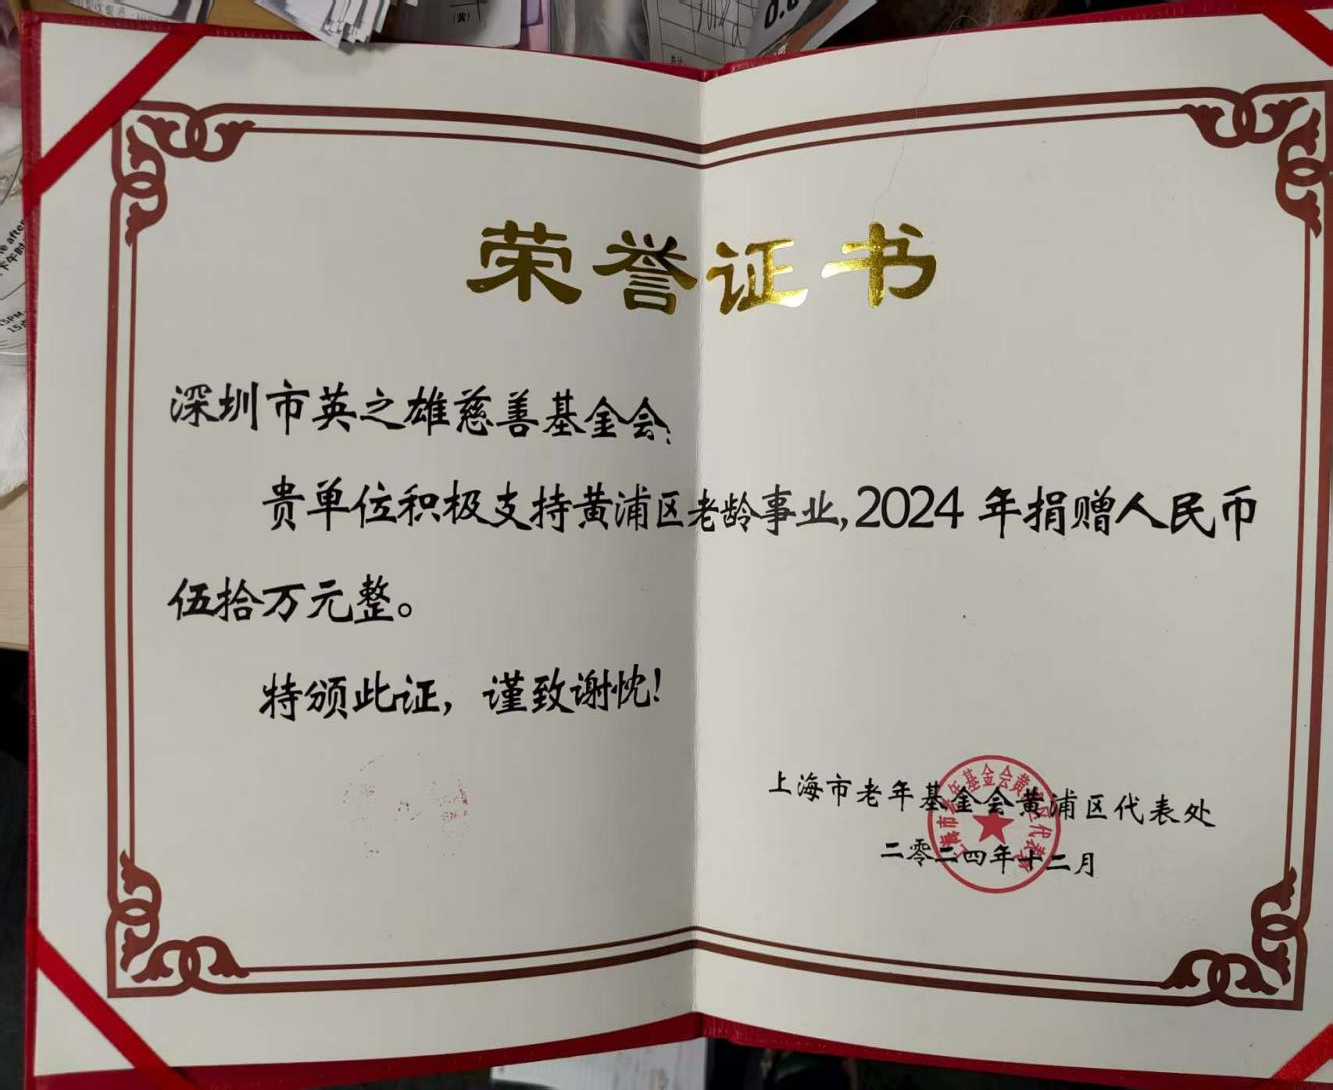 荣誉证书
深圳市英之雄慈善基金会:
贵单位积极支持黄浦区老龄事业,2024年捐赠人民币
伍拾万元整。
特颁此证，谨致谢忱!
上海市老年基金会黄浦区代表处
二零二四年十二月
上海市老年基金会黄浦区代表处